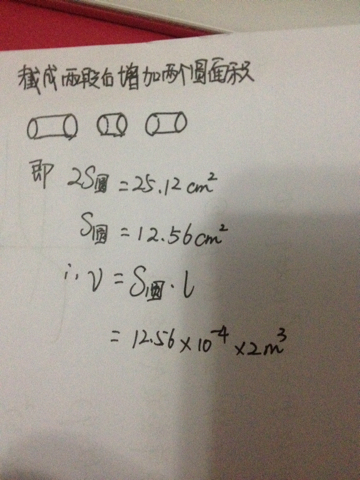 截成两段后增加两个圆面积
即 2S圆=25.12cm²
S圆=12.56cm²
∴V=S圆·l
=12.56×10⁻⁴×2m³